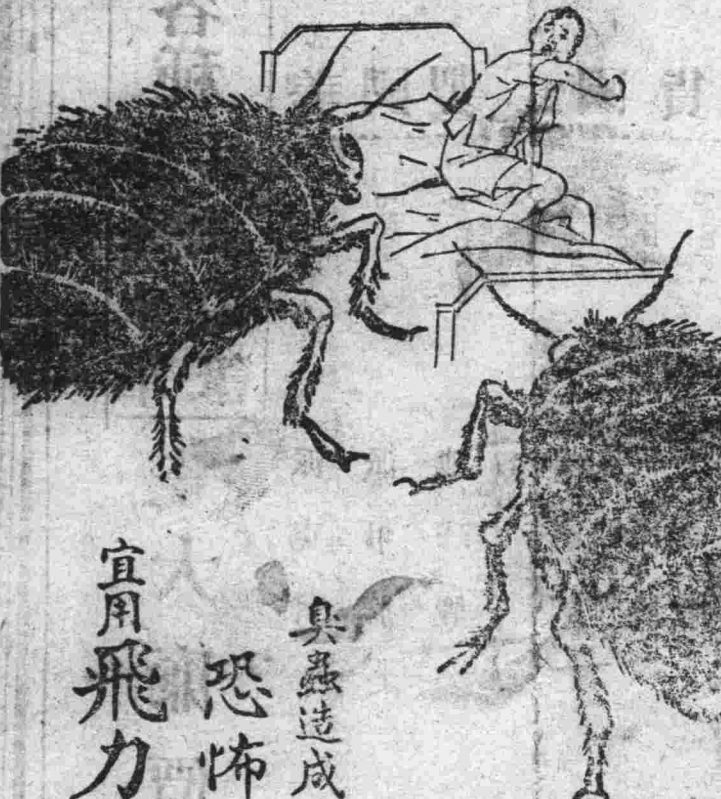 臭蟲造成
恐怖
宜用飛力